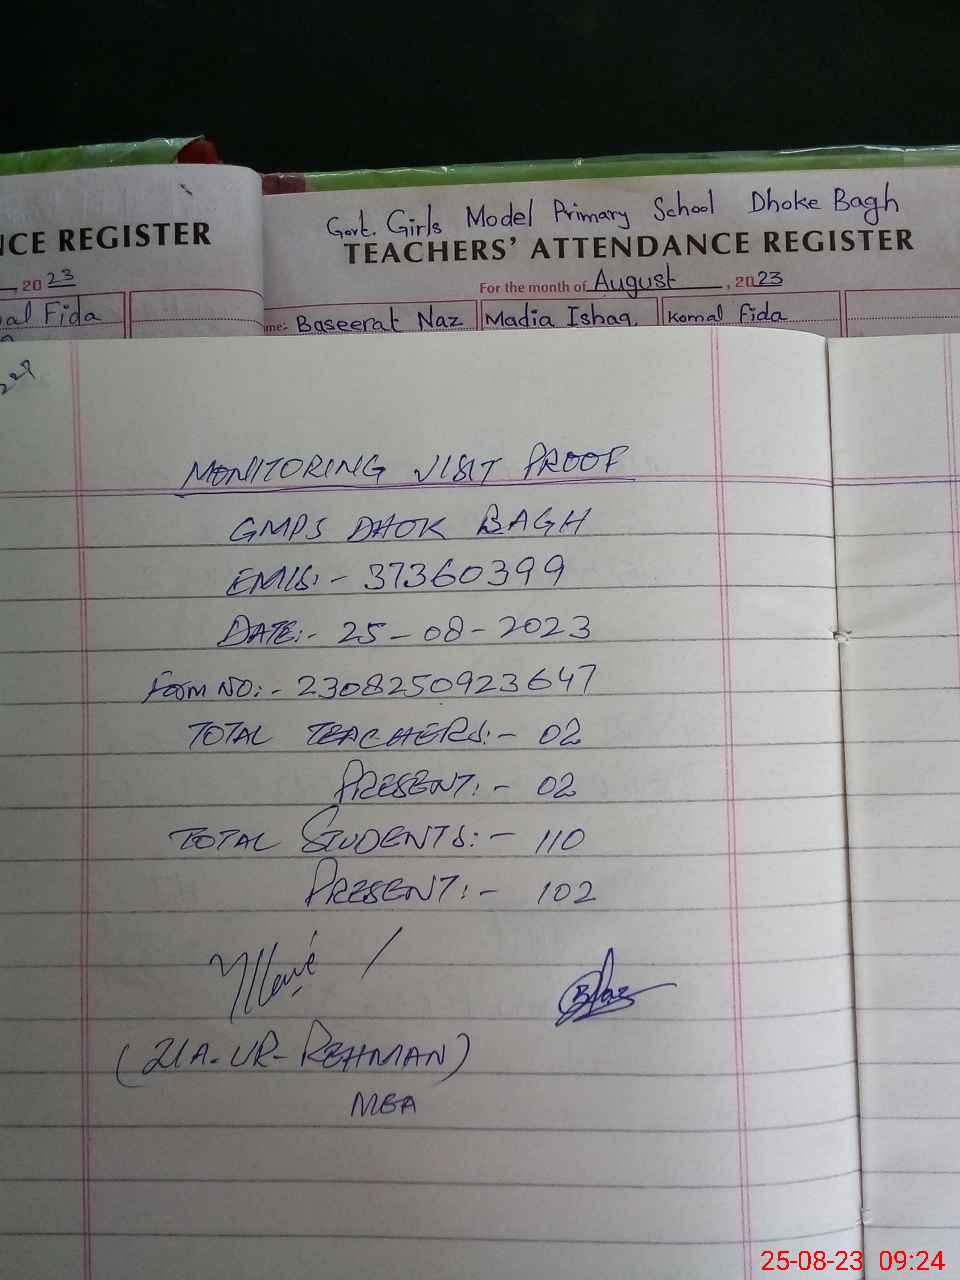 NCE REGISTER
, 2023
al Fida
Govt. Girls Model Primary School Dhoke Bagh
TEACHERS' ATTENDANCE REGISTER
For the month of August, 2023
me: Baseerat Naz Madia Ishaq. Komal Fida
227
MONITORING VISIT PROOF
GMPS DHOK BAGH
EMIS:- 37360399
DATE:- 25-08-2023
Form NO:- 2308250923647
TOTAL TEACHERS:- 02
PRESENT:- 02
TOTAL STUDENTS:- 110
PRESENT:- 102
(ZIA-UR-REHMAN)
MEA
25-08-23 09:24